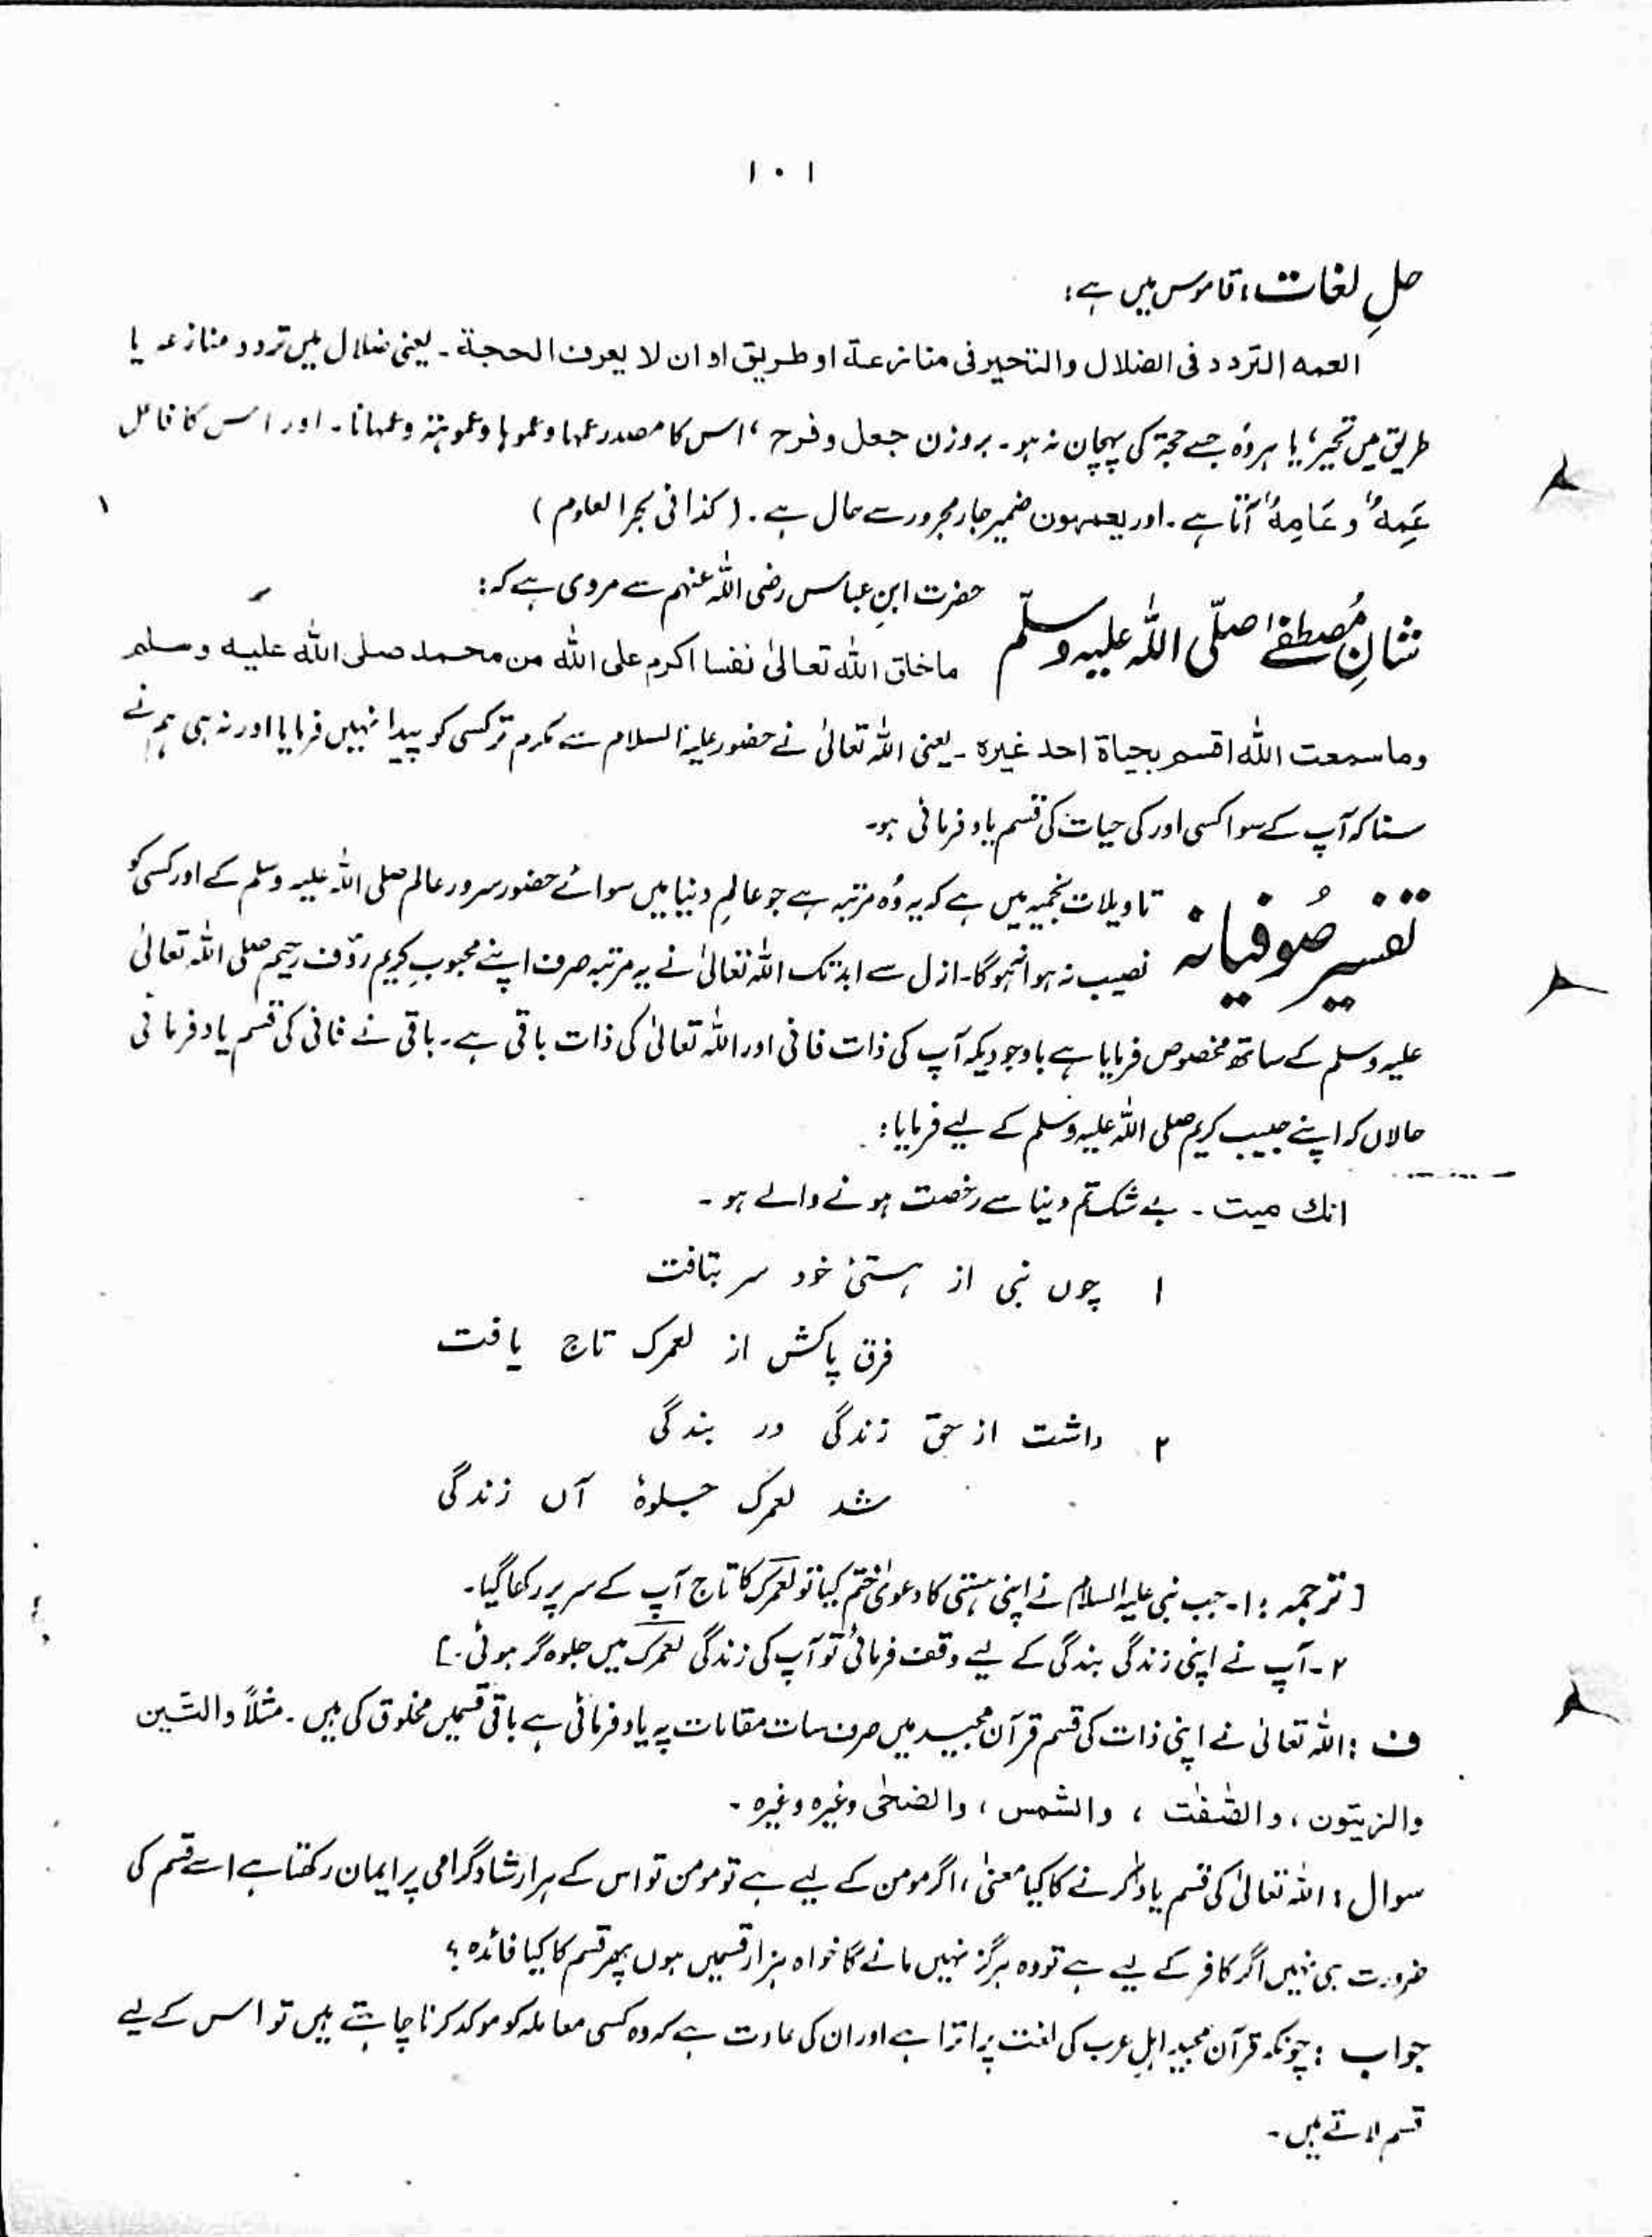 ۱۰۱
حلِ لغات: قاموس میں ہے:
العمه التردد فی الضلال والتحیر فی منازعة او طریق او ان لا یعرف الحجة ۔ یعنی ضلال میں تردد منازعہ یا
طریق میں تحیر، یا ہر وُہ جسے حجۃ کی پہچان نہ ہو۔ بروزن جعل و فرح، اس کا مصدر عمہا وعموہا وعموہۃ وعمہانا۔ اور اس کا فاعل
عَمِهٌ و عَامِهٌ آتا ہے۔ اور یعمہون ضمیر جار مجرور سے حال ہے۔ (کذا فی بحر العلوم)
حضرت ابنِ عباس رضی اللہ عنہم سے مروی ہے کہ:
شانِ مُصطفےٰ صلّی اللہ علیہ وسلّم ما خلق الله تعالیٰ نفسا اکرم علی الله من محمد صلی الله علیه وسلم
وما سمعت الله اقسم بحیاة احد غیره ۔ یعنی اللہ تعالیٰ نے حضور علیہ السلام سے مکرم تر کسی کو پیدا نہیں فرمایا اور نہ ہی ہم نے
سنا کہ آپ کے سوا کسی اور کی حیات کی قسم یاد فرمائی ہو۔
تفسیر صُوفیانہ تاویلات نجمیہ میں ہے کہ یہ وُہ مرتبہ ہے جو عالمِ دنیا میں سوائے حضور سرورِ عالم صلی اللہ علیہ وسلم کے اور کسی کو
نصیب نہ ہوا نہ ہوگا۔ ازل سے ابد تک اللہ تعالیٰ نے یہ مرتبہ صرف اپنے محبوبِ کریم رؤف رحیم صلی اللہ تعالیٰ
علیہ وسلم کے ساتھ مخصوص فرمایا ہے باوجودیکہ آپ کی ذات فانی اور اللہ تعالیٰ کی ذات باقی ہے۔ باقی نے فانی کی قسم یاد فرمائی
حالاں کہ اپنے حبیب کریم صلی اللہ علیہ وسلم کے لیے فرمایا:
انك میت ۔ بے شک تم دنیا سے رخصت ہونے والے ہو۔
۱ چوں نبی از ہستئ خود سر بتافت
فرق پاکش از لعمرک تاج یافت
۲ داشت از حق زندگی در بندگی
شد لعمرک جلوۂ آں زندگی
[ ترجمہ: ۱۔ جب نبی علیہ السلام نے اپنی ہستی کا دعویٰ ختم کیا تو لعمرک کا تاج آپ کے سر پر رکھا گیا۔
۲۔ آپ نے اپنی زندگی بندگی کے لیے وقف فرمائی تو آپ کی زندگی لعمرک میں جلوہ گر ہوئی۔]
ف: اللہ تعالیٰ نے اپنی ذات کی قسم قرآن مجید میں صرف سات مقامات پہ یاد فرمائی ہے باقی قسمیں مخلوق کی ہیں۔ مثلاً والتّین
والزیتون، والصّٰفّٰت، والشمس، والضحٰی وغیرہ وغیرہ۔
سوال: اللہ تعالیٰ کی قسم یاد کرنے کا کیا معنیٰ، اگر مومن کے لیے ہے تو مومن تو اس کے ہر ارشاد گرامی پر ایمان رکھتا ہے اسے قسم کی
ضرورت ہی نہیں اگر کافر کے لیے ہے تو وہ ہرگز نہیں مانے گا خواہ ہزار قسمیں ہوں پھر قسم کا کیا فائدہ؟
جواب: چونکہ قرآن مجید اہلِ عرب کی لغت پر اترا ہے اور ان کی عادت ہے کہ وہ کسی معاملہ کو موکد کرنا چاہتے ہیں تو اس کے لیے
قسم لاتے ہیں۔